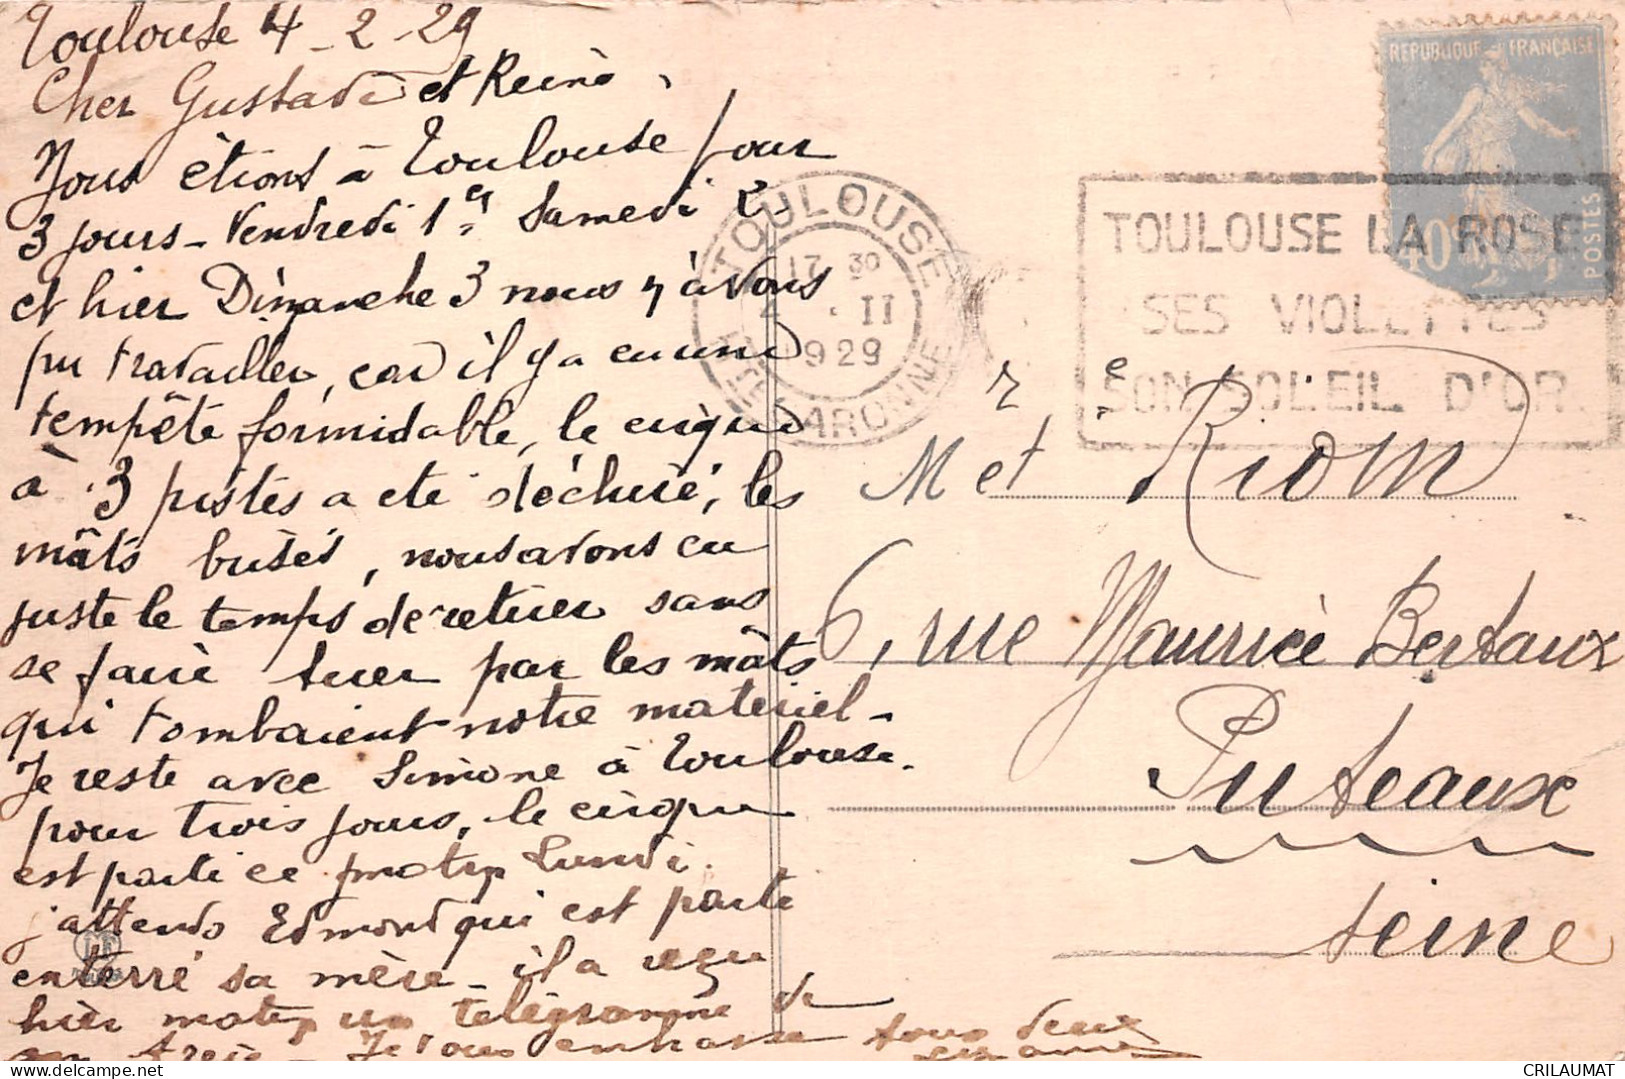 Toulouse 4-2-29
Cher Gustave et Reine,
Nous étions à Toulouse pour
3 jours - Vendredi 1er Samedi 2 -
et hier Dimanche 3 nous n'avons
pu travailler, car il y a eu une
tempête formidable, le cirque
à 3 pistes a été déchiré, les
mâts brisés, nous avons eu
juste le temps de retirer sans
se faire tuer par les mâts
qui tombaient notre matériel -
Je reste avec Simone à Toulouse
pour trois jours, le cirque
est parti ce matin Lundi.
j'attends Edmond qui est parti
enterré sa mère - il a reçu
hier matin un télégramme de
Je vous embrasse tous deux
REPUBLIQUE FRANÇAISE
40c
POSTES
TOULOUSE
17 30
4 · II
1929
HTE GARONNE
TOULOUSE LA ROSE
SES VIOLETTES
SON SOLEIL D'OR
M et Me Riom
6, rue Maurice Bertaux
Puteaux
Seine
CRILAUMAT